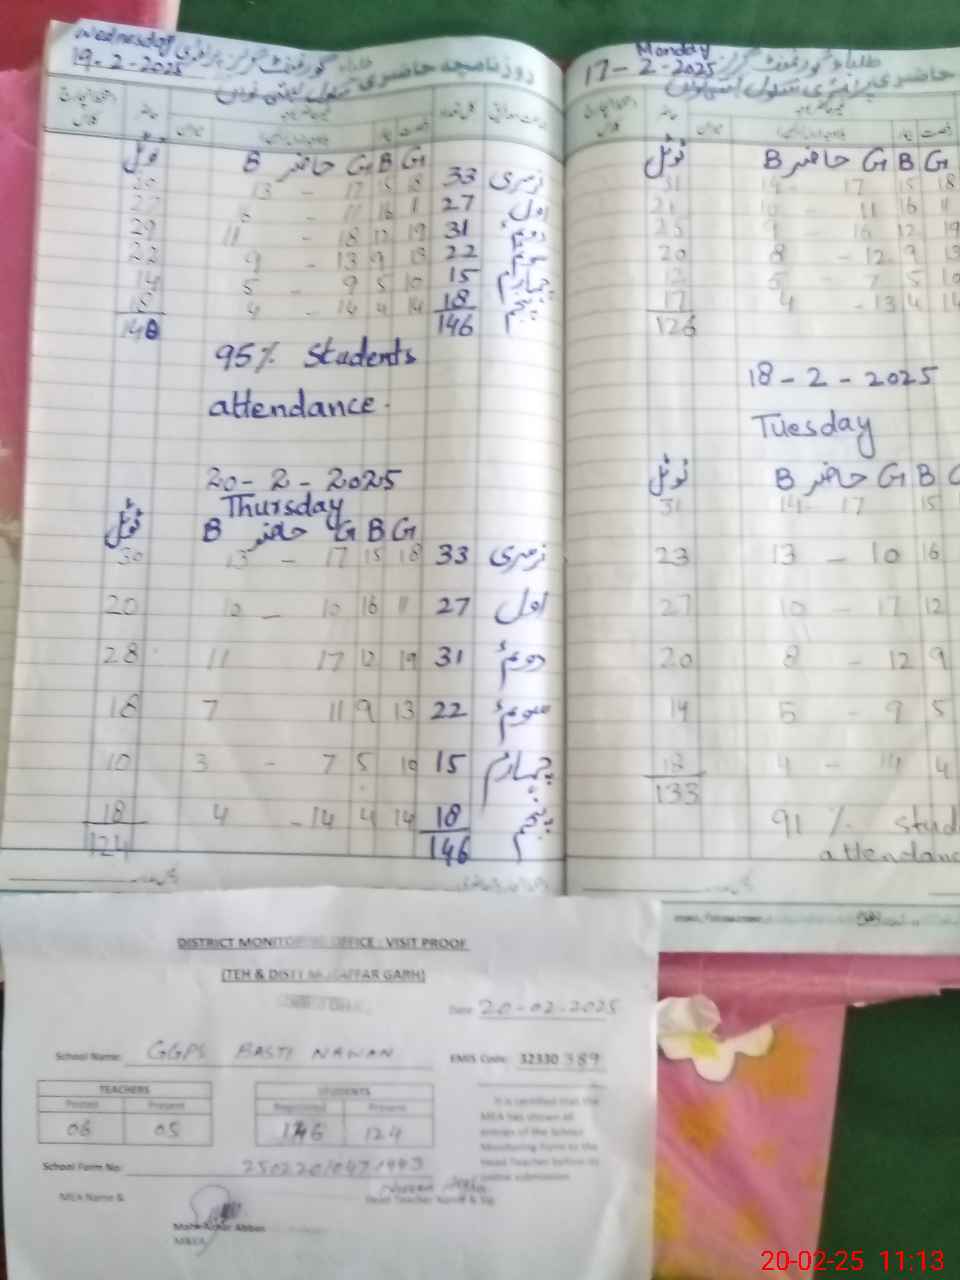 Wednesday
19-2-2025
گورنمنٹ گرلز پرائمری
روزنامچہ حاضری
سکول بستی نواں
ٹوٹل B حاضر G B G
30 13 - 17 15 18 33 نرسری
27 16 - 11 16 1 27 اول
29 11 - 18 12 19 31 دوئم
22 9 - 13 9 13 22 سوئم
14 5 - 9 5 10 15 چہارم
18 4 - 14 4 14 18 پنجم
140 146
95% Students
attendance.
20-2-2025
Thursday
ٹوٹل B حاضر G B G
30 13 - 17 15 18 33 نرسری
20 10 - 10 16 11 27 اول
28 11 17 12 19 31 دوئم
18 7 11 9 13 22 سوئم
10 3 - 7 5 10 15 چہارم
18 4 - 14 4 14 18 پنجم
124 146
Monday
17-2-2025
طلباء گورنمنٹ گرلز
حاضری پرائمری سکول بستی نواں
ٹوٹل B حاضر G B G
31 14 - 17 15 18
21 10 - 11 16 11
25 9 - 16 12 19
20 8 - 12 9 13
12 5 - 7 5 10
17 4 - 13 4 14
126
18-2-2025
Tuesday
ٹوٹل B حاضر G B
31 14 - 17 15
23 13 - 10 16
27 10 - 17 12
20 8 - 12 9
14 5 - 9 5
18 4 - 14 4
133
91 % Stud
attendanc
DISTRICT MONITORING OFFICE : VISIT PROOF
(TEH & DISTT MUZAFFAR GARH)
Date: 20-02-2025
School Name: GGPS BASTI NAWAN EMIS Code: 32330 389
TEACHERS STUDENTS
Posted Present Registered Present
06 05 146 124
It is certified that the
MEA has shown all
entries of the School
Monitoring Form to the
Head Teacher before its
online submission
School Form No: 250220/0471993
MEA Name & Head Teacher Name & Sig
Abbas
MEA
20-02-25 11:13